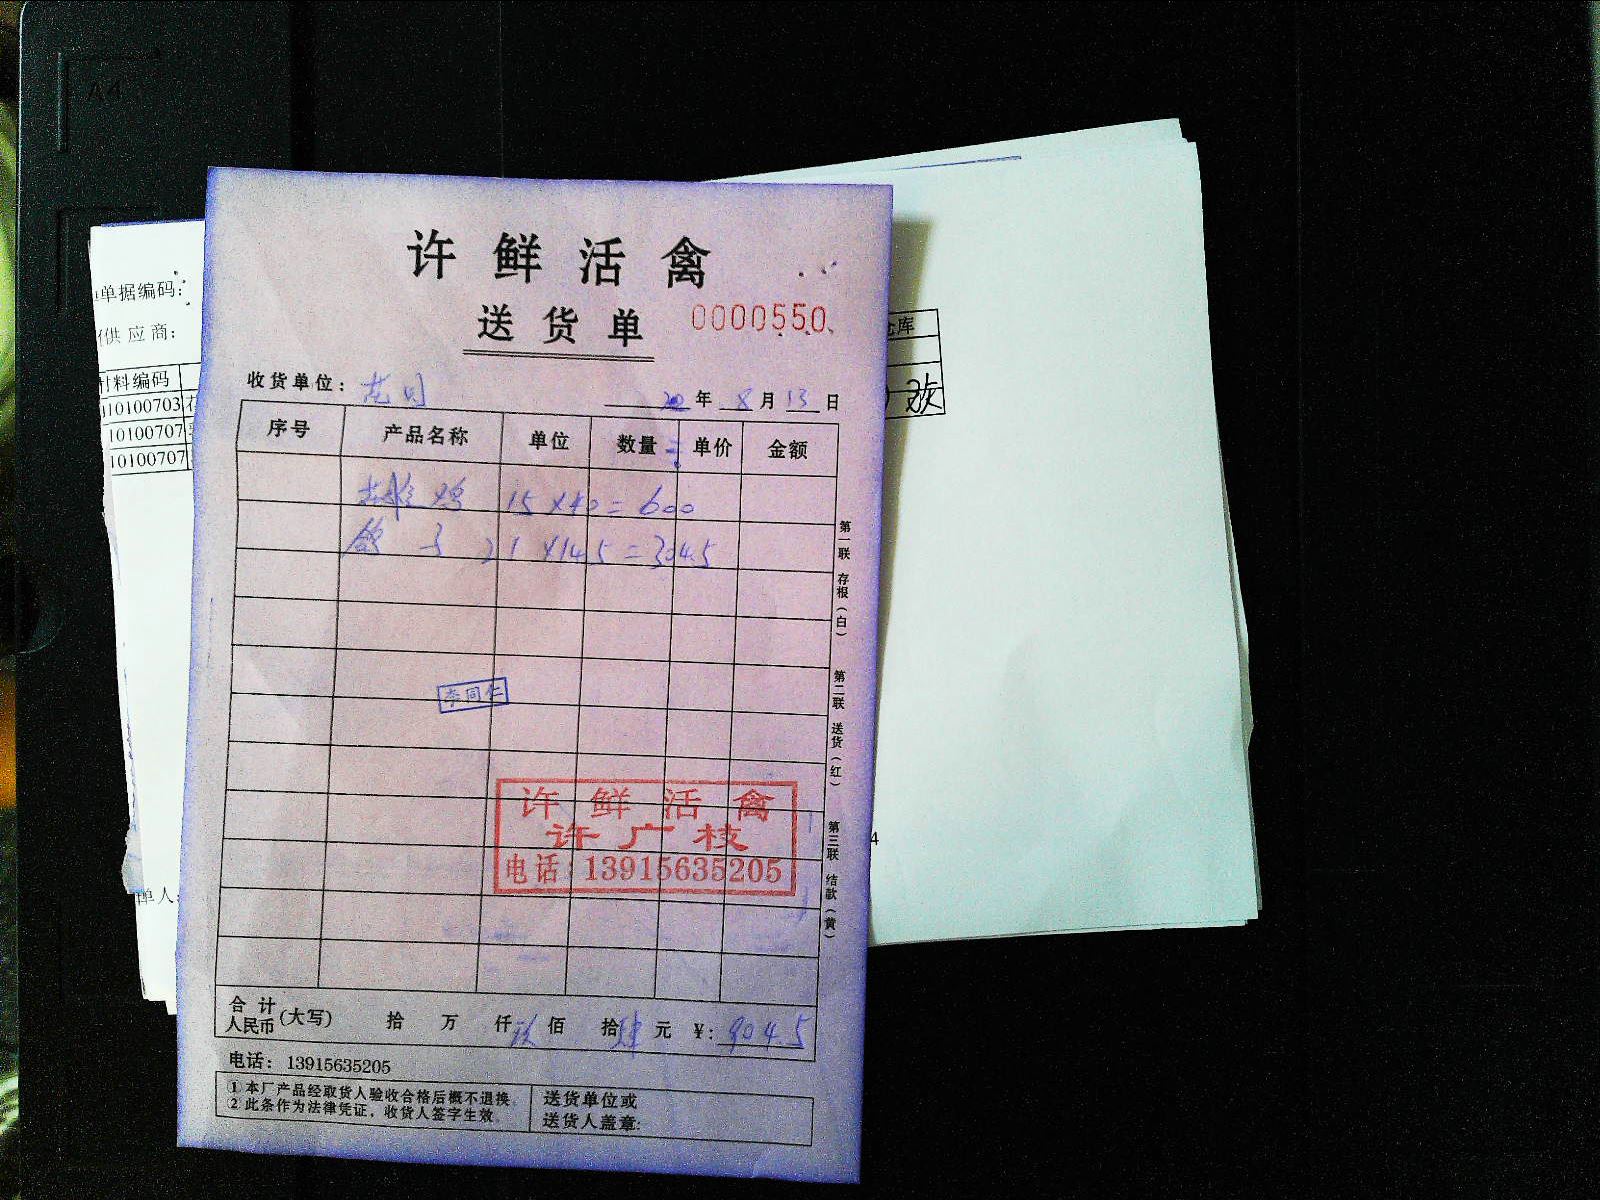 A4
单据编码:
供应商:
材料编码
110100703
10100707
10100707
仓库
许鲜活禽
送货单
0000550
收货单位:
20年8月13日
序号 产品名称 单位 数量 单价 金额
鸡 15×40=600
鸽子 21×14.5=304.5
李同仁
许鲜活禽
许广枝
电话:13915635205
第一联 存根(白)
第二联 送货(红)
第三联 结款(黄)
合计人民币(大写) 拾 万 仟玖佰 拾肆元 ¥:904.5
电话:13915635205
①本厂产品经取货人验收合格后概不退换。
②此条作为法律凭证,收货人签字生效。
送货单位或
送货人盖章:
单人:
4